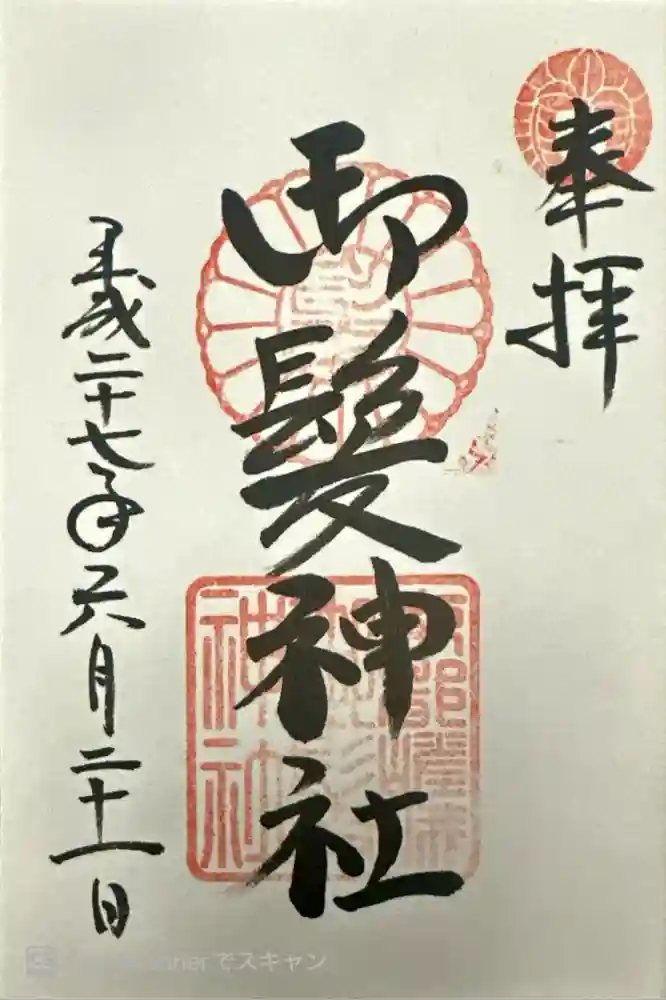 奉拝
御髪神社
平成二十七年六月二十一日
神社
でスキャン